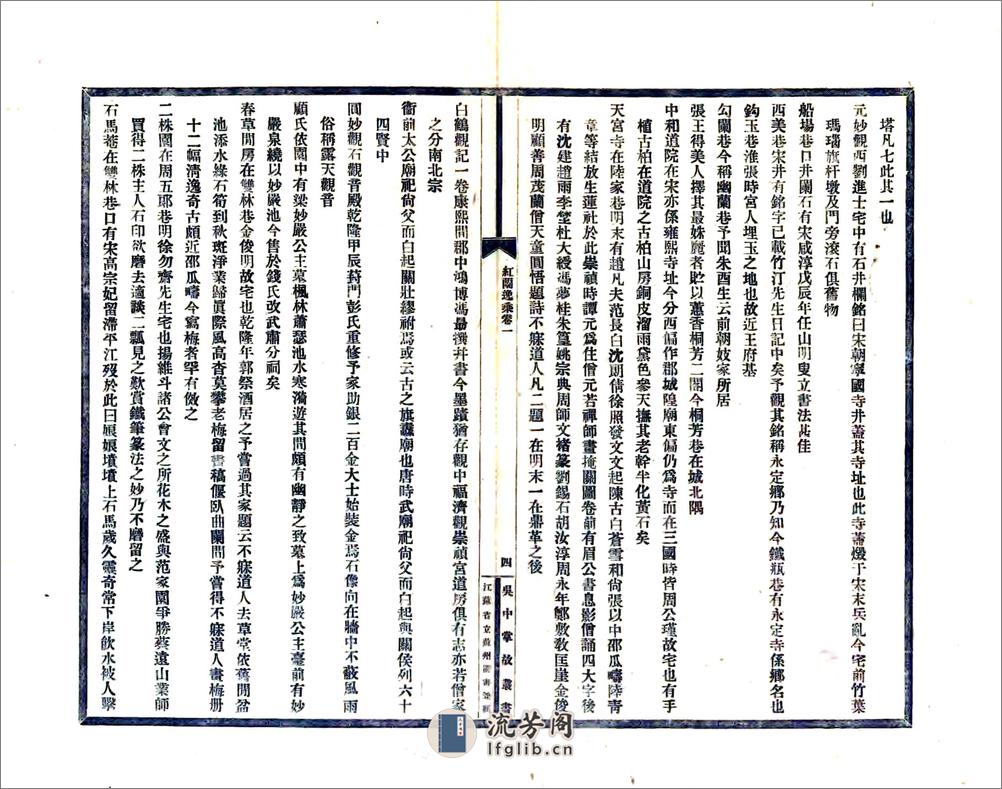 塔凡七此其一也
元妙觀西劉進士宅中有石井欄銘曰宋朝寧國寺井蓋其寺址也此寺蕭燬于宋末兵亂今宅前竹葉
瑪瑙旗杆墩及門旁滾石俱舊物
船場巷口井闌石有宋咸淳戊辰年任山明叟立書法甚佳
西美巷宋井有銘字已載竹汀先生日記中矣予觀其銘稱永定鄉乃知今鐵瓶巷有永定寺係鄉名也
鈎玉巷淮張時宮人埋玉之地也故近王府基
勾闌巷今稱幽蘭巷予聞朱酉生云前朝妓家所居
張王得美人擇其最姝麗者貯以蕙香桐芳二閣今桐芳巷在城北隅
中和道院在宋亦係雍熙寺址今分西偏作郡城隍廟東偏仍爲寺而在三國時皆周公瑾故宅也有手
植古柏在道院之古柏山房銅皮溜雨黛色參天撫其老幹半化黃石矣
天宮寺在陸家巷明末有趙凡夫范長白沈朗倩徐照發文文起陳古白蒼雪和尚張以中邵瓜疇陸靑
章等結放生蓮社於此崇禎時譚元爲住僧元若禪師畫掩關圖卷前有眉公書息影僧誦四大字後
有沈建趙雨李瑩杜大綬馮夢桂朱篁姚宗典周師文褚篆劉錫石胡汝淳周永年鄭敷敎匡崖金俊
明顧善周茂蘭僧天童圓悟題詩不寐道人凡二題一在明末一在鼎革之後
紅蘭逸乘卷一
四
吳中掌故叢書
江蘇省立蘇州圖書館
白鶴觀記一卷康熙間郡中鴻博馮勗撰幷書今墨蹟猶存觀中福濟觀崇禎宮道房俱有志亦若僧家
之分南北宗
衞前太公廟祀尚父而白起關壯繆祔焉或云古之旗纛廟也唐時武廟祀尚父而白起與關侯列六十
四賢中
圓妙觀石觀音殿乾隆甲辰葑門彭氏重修予家助銀二百金大士始裝金焉石像向在牆中不蔽風雨
俗稱露天觀音
顧氏依園中有梁妙嚴公主墓楓林蕭瑟池水寒漪遊其間頗有幽靜之致墓上爲妙嚴公主臺前有妙
嚴泉繞以妙嚴池今售於錢氏改武肅分祠矣
春草閒房在雙林巷金俊明故宅也乾隆年郭祭酒居之予嘗過其家題云不寐道人去草堂依舊開盆
池添水綠石筍到秋斑淨業歸眞際風高杳莫攀老梅留書稿偃臥曲闌間予嘗得不寐道人畫梅冊
十二幅淸逸奇古頗近邵瓜疇今寫梅者罕有倣之
二株園在周五郎巷明徐勿齋先生宅也揚維斗諸公會文之所花木之盛與范家園爭勝蔡遠山業師
買得二株主人石印欲磨去適談二瓢見之歎賞鐵筆篆法之妙乃不磨留之
石馬菴在雙林巷口有宋高宗妃留滯平江歿於此曰娘娘墳墳上石馬歲久靈奇常下岸飲水被人擊
流芳阁
lfglib.cn